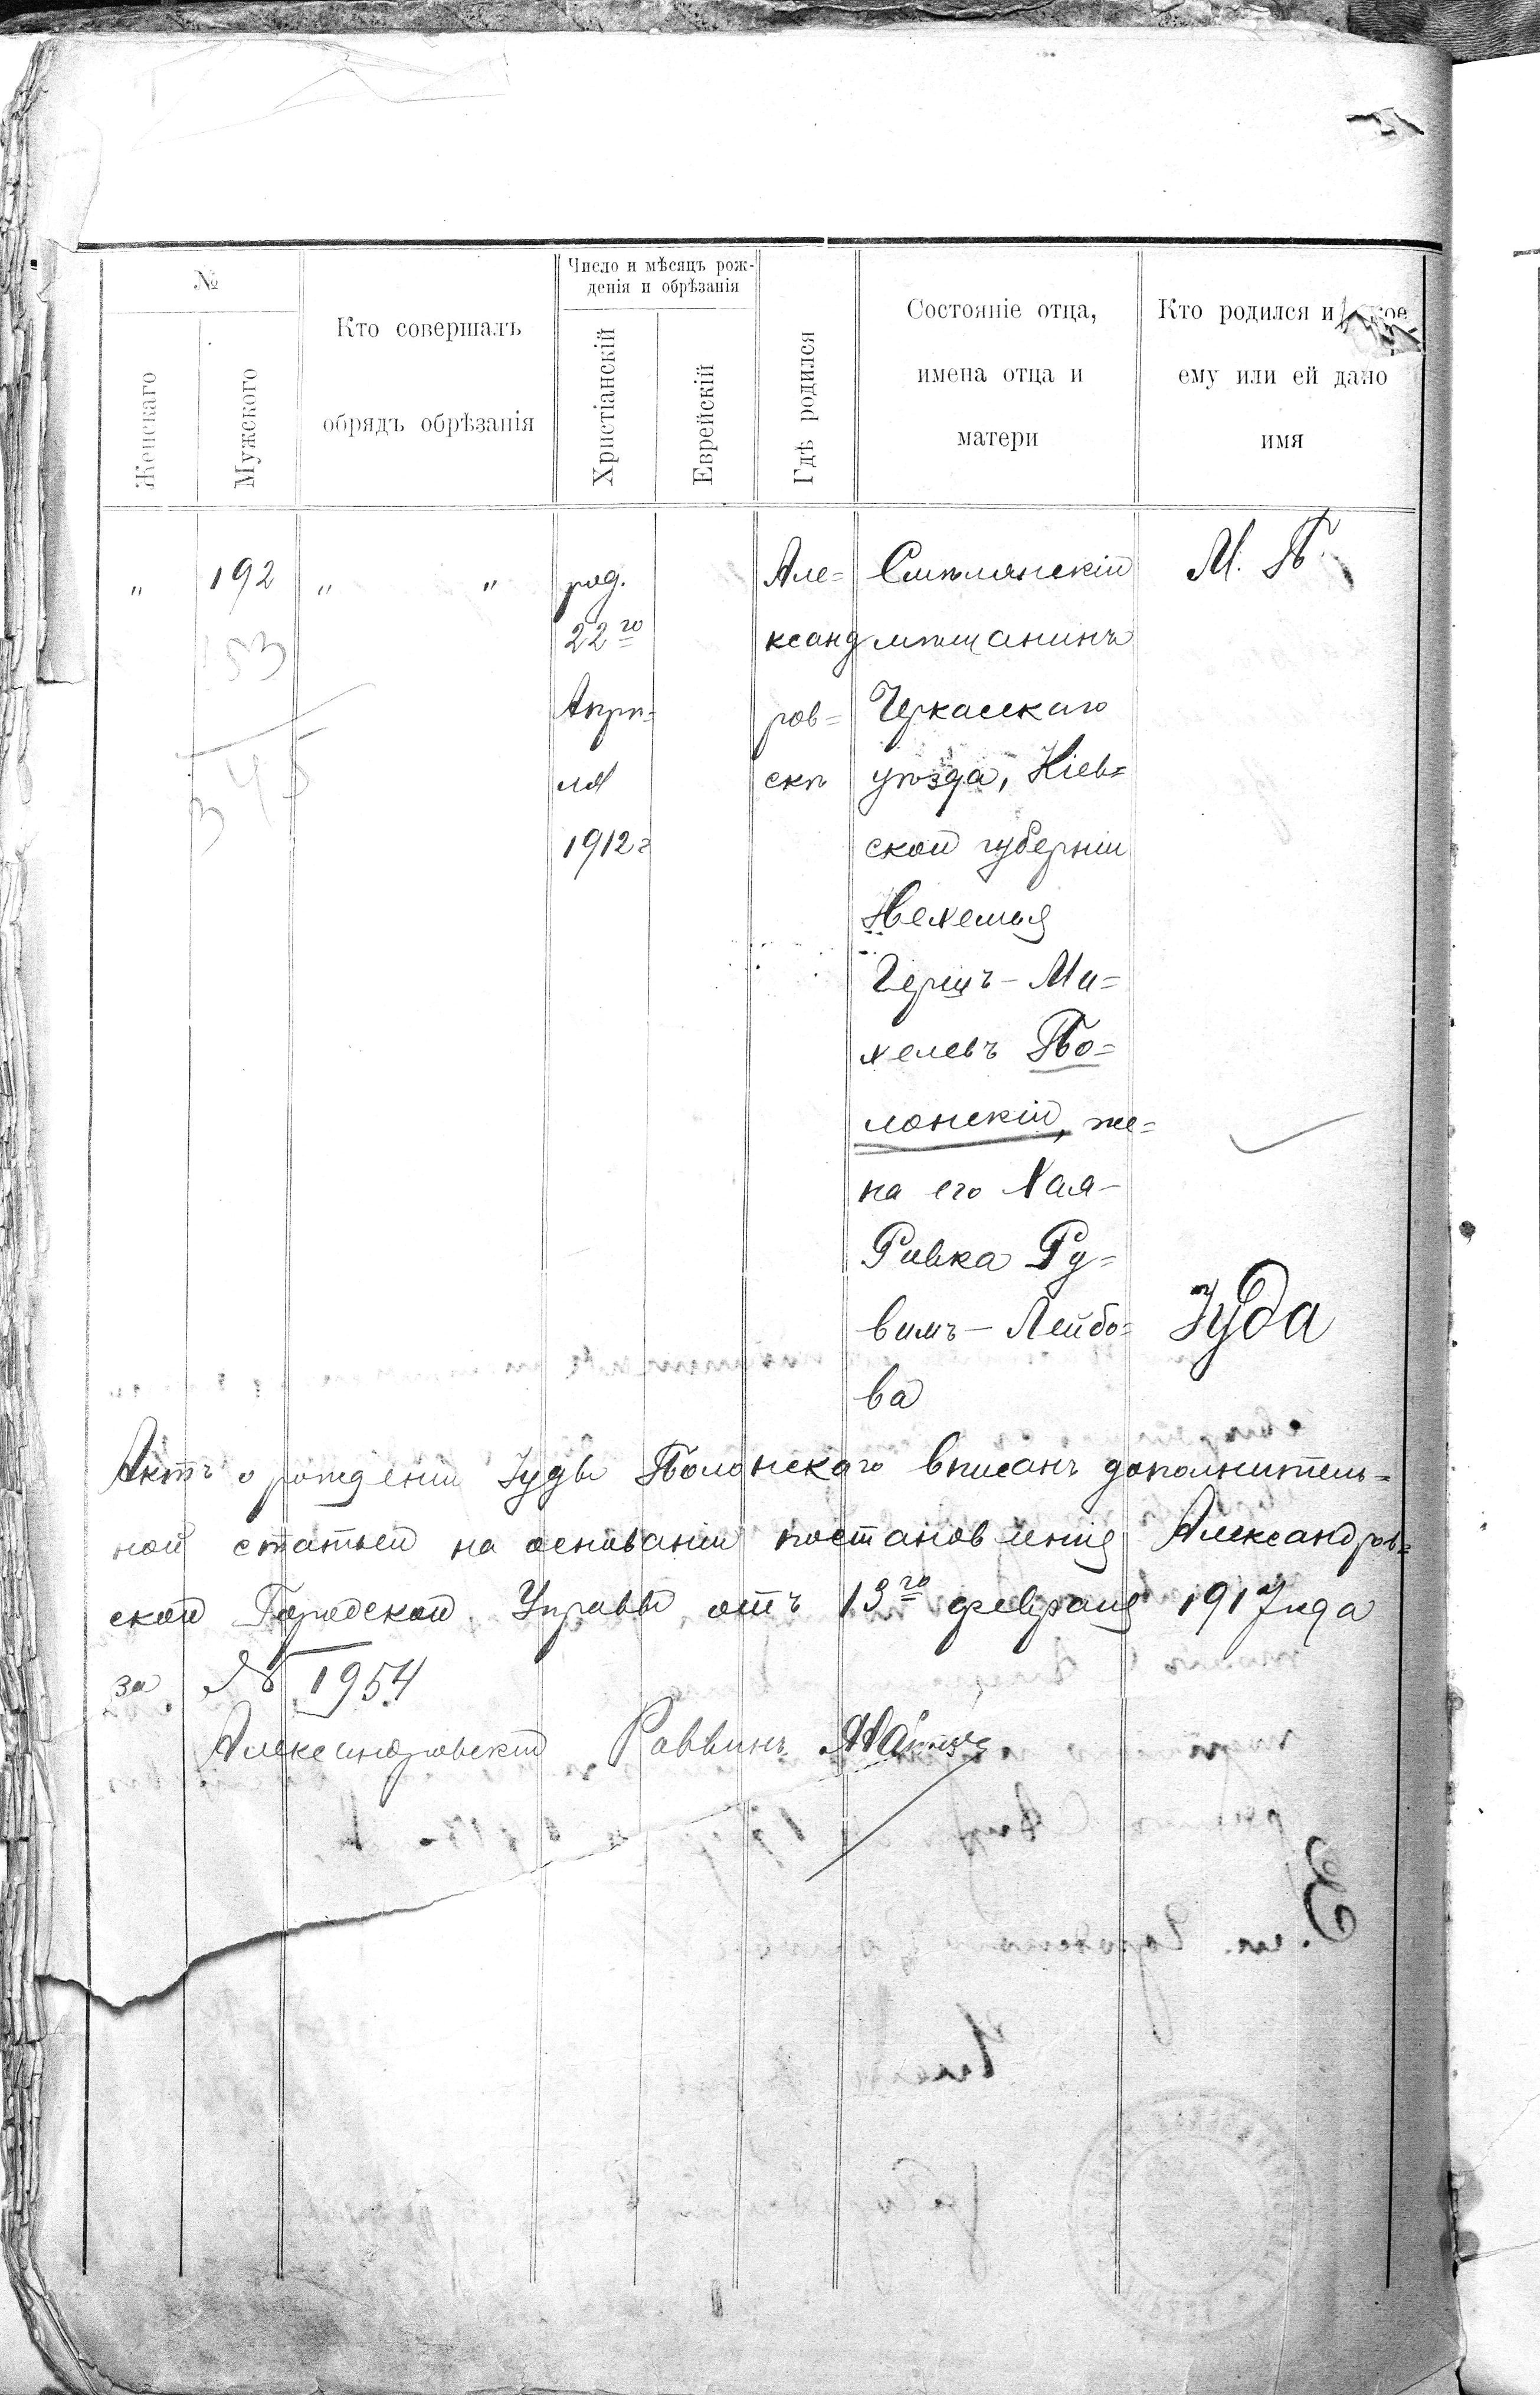 №
Женскаго
Мужского
Кто совершалъ
обрядъ обрѣзанія
Число и мѣсяцъ рож-
денія и обрѣзанія
Христіанскій
Еврейскій
Гдѣ родился
Состояніе отца,
имена отца и
матери
Кто родился и какое
ему или ей дано
имя
" 192 " "
53
345
род.
22го
Апрѣ=
ля
1912г
Але=
ксанд
ров=
скѣ
Смѣлянскій
мѣщанинъ
Черкасскаго
уѣзда, Кіев=
ской губерніи
Нехемья
Гершъ-Ми=
хелевъ По=
лонскій, же=
на его Хая-
Ривка Ру=
вимъ-Лейбо=
ва
М. П.
Іуда
Актъ о рожденіи Іуды Полонскаго вписанъ дополнитель=
ной статьей на основаніи постановленія Александров=
ской Городской Управы отъ 13го февраля 1917 года
за № 1954
Александровскій Раввинъ